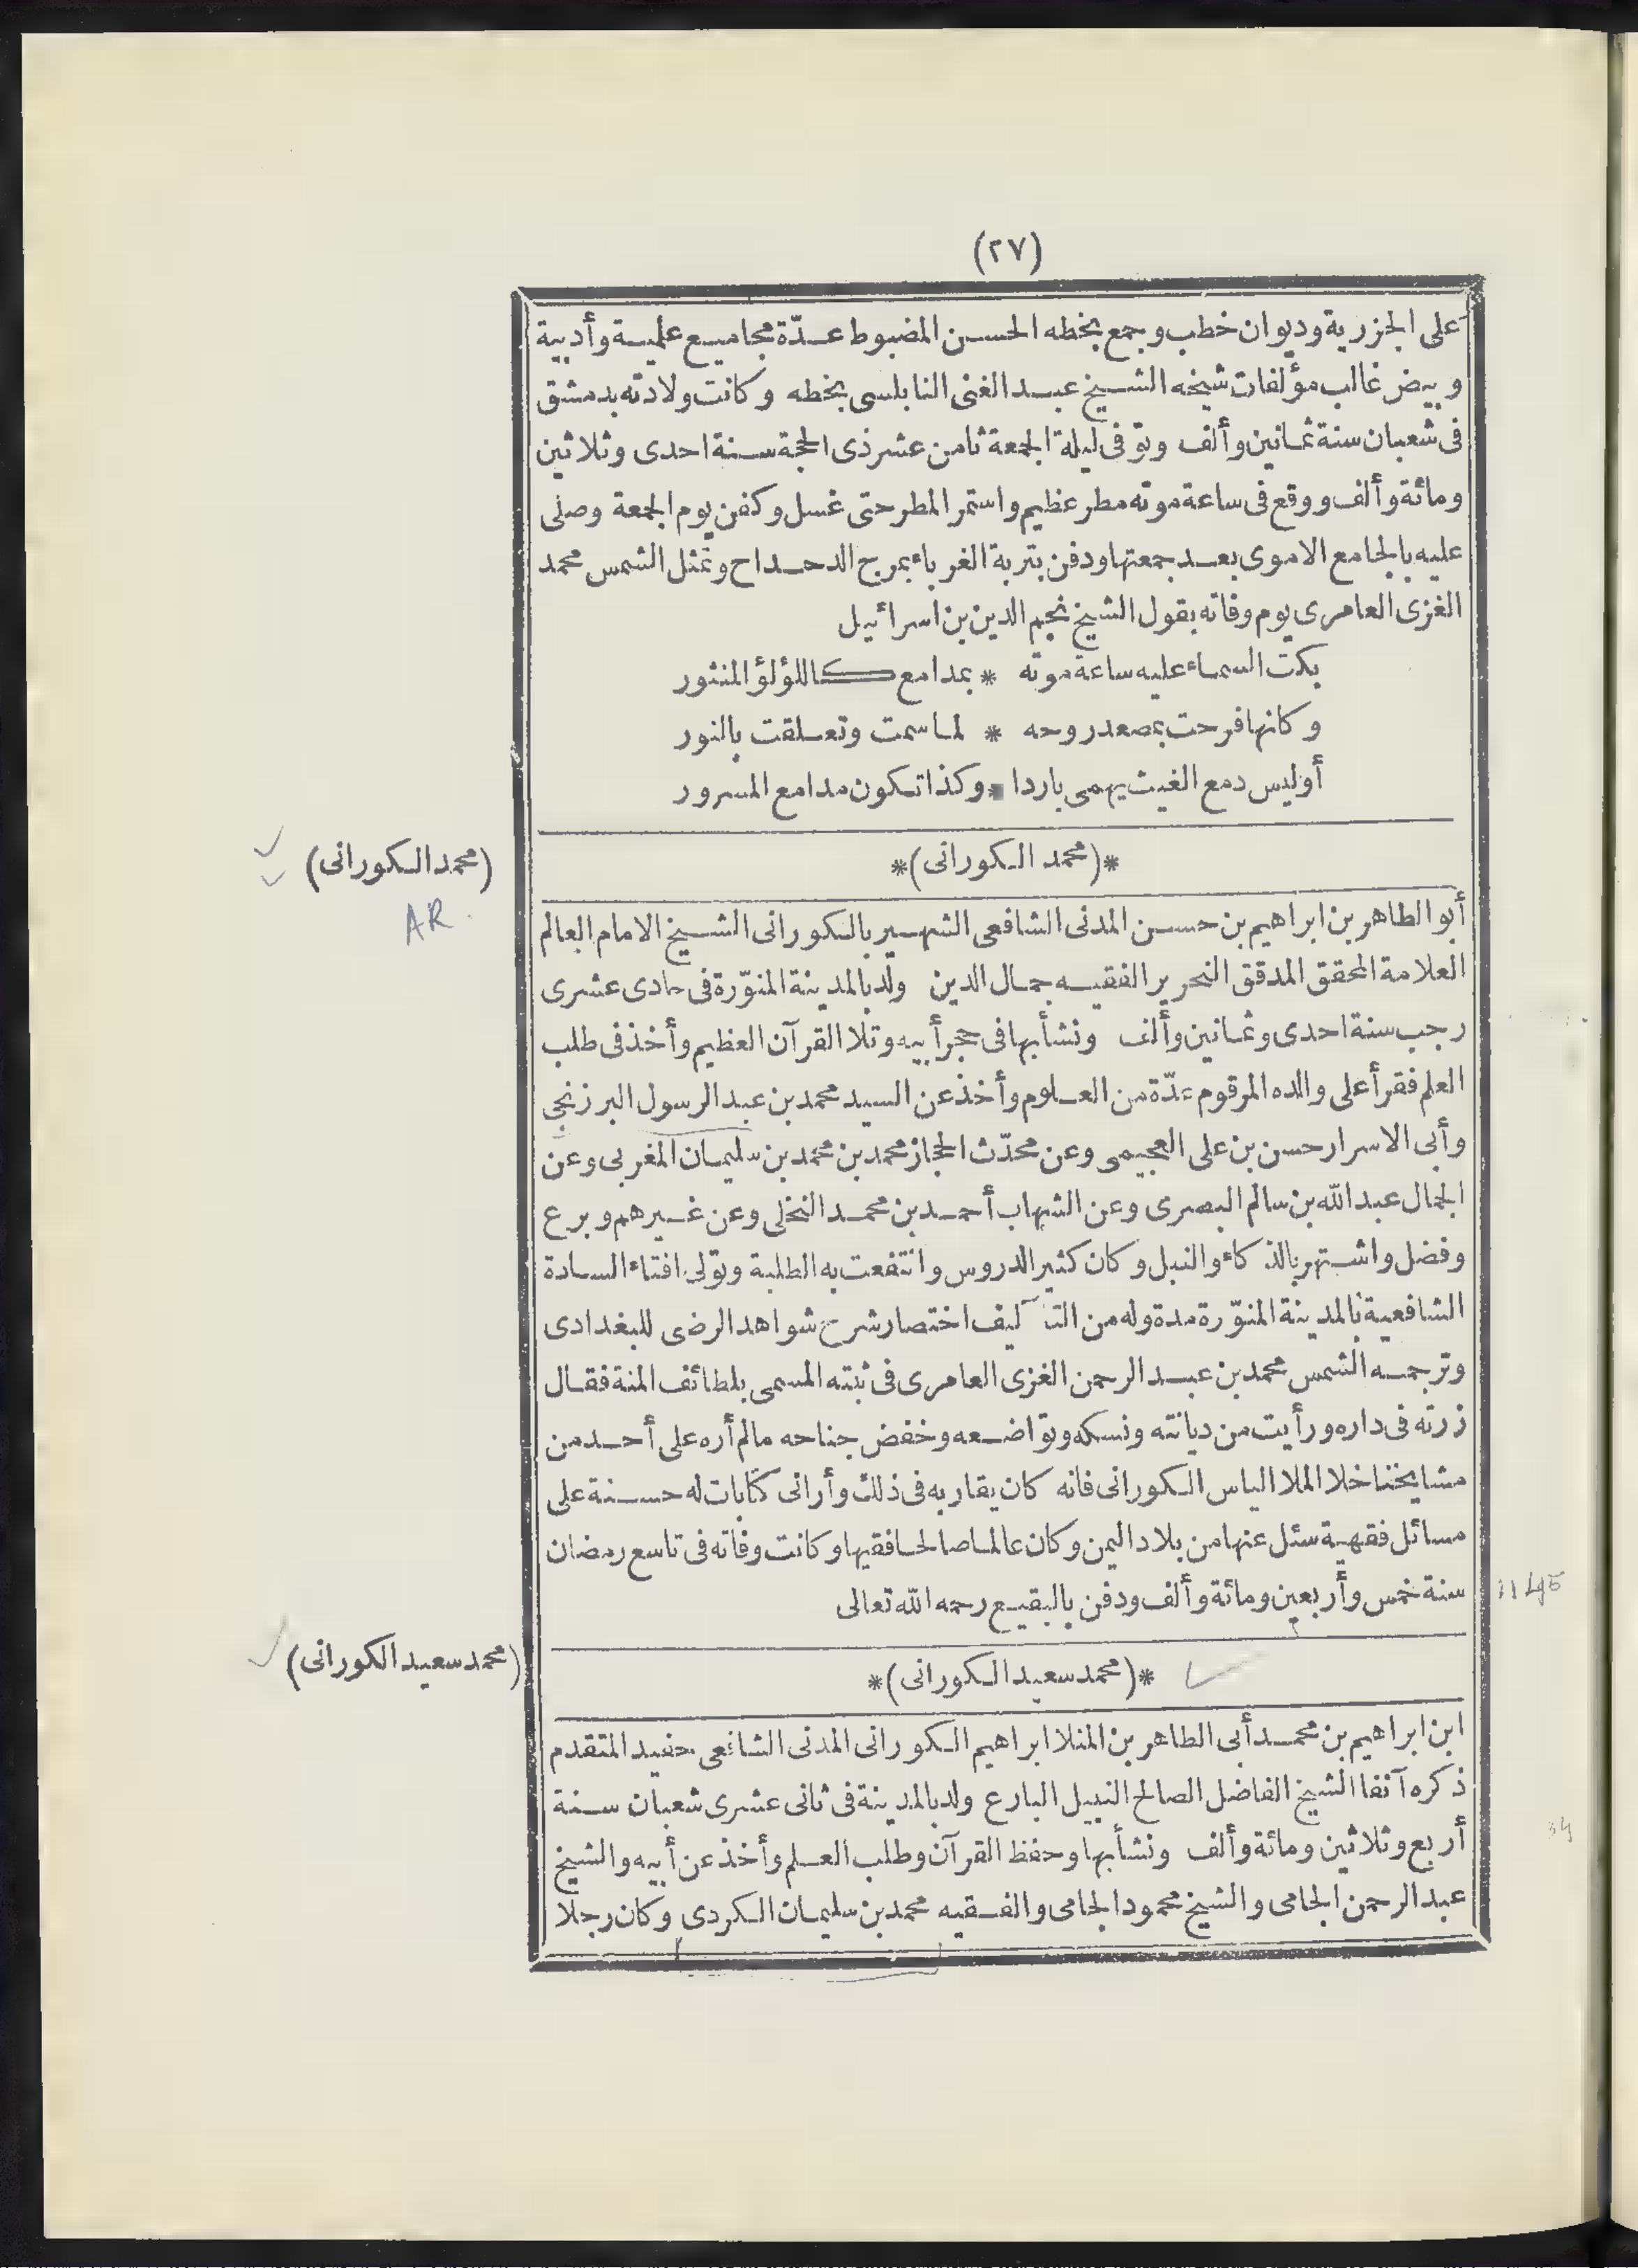 (٢٧)
على الجزرية وديوان خطب وجمع بخطه الحسن المضبوط عدّة مجاميع علمية وأدبية
وبيض غالب مؤلفات شيخه الشيخ عبد الغنى النابلسى بخطه وكانت ولادته بدمشق
فى شعبان سنة ثمانين وألف وتوفى ليلة الجمعة ثامن عشر ذى الحجة سنة احدى وثلاثين
ومائة وألف ووقع فى ساعة موته مطر عظيم واستمر المطر حتى غسل وكفن يوم الجمعة وصلى
عليه بالجامع الاموى بعد جمعتها ودفن بتربة الغرباء بمرج الدحداح وتمثل الشمس محمد
الغزى العامرى يوم وفاته بقول الشيخ نجم الدين بن اسرائيل
بكت السماء عليه ساعة موته * بمدامع كاللؤلؤ المنثور
وكانها فرحت بمصعد روحه * لما سمت وتعلقت بالنور
أوليس دمع الغيث يهمى باردا * وكذا تكون مدامع المسرور
*(محمد الكورانى)*
(محمد الكورانى)
AR.
أبو الطاهر بن ابراهيم بن حسن المدنى الشافعى الشهير بالكورانى الشيخ الامام العالم
العلامة المحقق المدقق النحرير الفقيه جمال الدين ولد بالمدينة المنوّرة فى حادى عشرى
رجب سنة احدى وثمانين وألف ونشأ بها فى حجر أبيه وتلا القرآن العظيم وأخذ فى طلب
العلم فقرأ على والده المرقوم عدّة من العلوم وأخذ عن السيد محمد بن عبد الرسول البرزنجى
وأبى الاسرار حسن بن على العجيمى وعن محدّث الحجاز محمد بن محمد بن سليمان المغربى وعن
الجمال عبد الله بن سالم البصرى وعن الشهاب أحمد بن محمد النخلى وعن غيرهم وبرع
وفضل واشتهر بالذكاء والنبل وكان كثير الدروس وانتفعت به الطلبة وتولى افتاء السادة
الشافعية بالمدينة المنوّرة مدة وله من التآليف اختصار شرح شواهد الرضى للبغدادى
وترجمه الشمس محمد بن عبد الرحمن الغزى العامرى فى ثبته المسمى بلطائف المنة فقال
زرته فى داره ورأيت من ديانته ونسكه وتواضعه وخفض جناحه مالم أره على أحد من
مشايخنا خلا الملا الياس الكورانى فانه كان يقاربه فى ذلك وأرانى كتابات له حسنة على
مسائل فقهية سئل عنها من بلاد اليمن وكان عالما صالحا فقيها وكانت وفاته فى تاسع رمضان
سنة خمس وأربعين ومائة وألف ودفن بالبقيع رحمه الله تعالى
1145
*(محمد سعيد الكورانى)*
(محمد سعيد الكورانى)
ابن ابراهيم بن محمد أبى الطاهر بن المنلا ابراهيم الكورانى المدنى الشافعى حفيد المتقدم
ذكره آنفا الشيخ الفاضل الصالح النبيل البارع ولد بالمدينة فى ثانى عشرى شعبان سنة
أربع وثلاثين ومائة وألف ونشأ بها وحفظ القرآن وطلب العلم وأخذ عن أبيه والشيخ
34
عبد الرحمن الجامى والشيخ محمود الجامى والفقيه محمد بن سليمان الكردى وكان رجلا